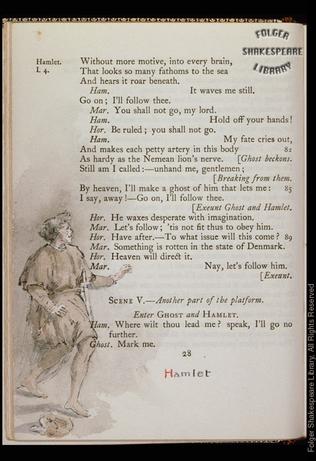 FOLGER
SHAKESPEARE
LIBRARY
Hamlet.
I. 4.
Without more motive, into every brain,
That looks so many fathoms to the sea
And hears it roar beneath.
Ham. It waves me still.
Go on; I'll follow thee.
Mar. You shall not go, my lord.
Ham. Hold off your hands!
Hor. Be ruled; you shall not go.
Ham. My fate cries out,
And makes each petty artery in this body 82
As hardy as the Nemean lion's nerve. [Ghost beckons.
Still am I called:—unhand me, gentlemen;
[Breaking from them.
By heaven, I'll make a ghost of him that lets me: 85
I say, away!—Go on, I'll follow thee.
[Exeunt Ghost and Hamlet.
Hor. He waxes desperate with imagination.
Mar. Let's follow; 'tis not fit thus to obey him.
Hor. Have after.—To what issue will this come? 89
Mar. Something is rotten in the state of Denmark.
Hor. Heaven will direct it.
Mar. Nay, let's follow him.
[Exeunt.
SCENE V.—Another part of the platform.
Enter GHOST and HAMLET.
Ham. Where wilt thou lead me? speak, I'll go no
further.
Ghost. Mark me.
28
Hamlet
Folger Shakespeare Library. All Rights Reserved